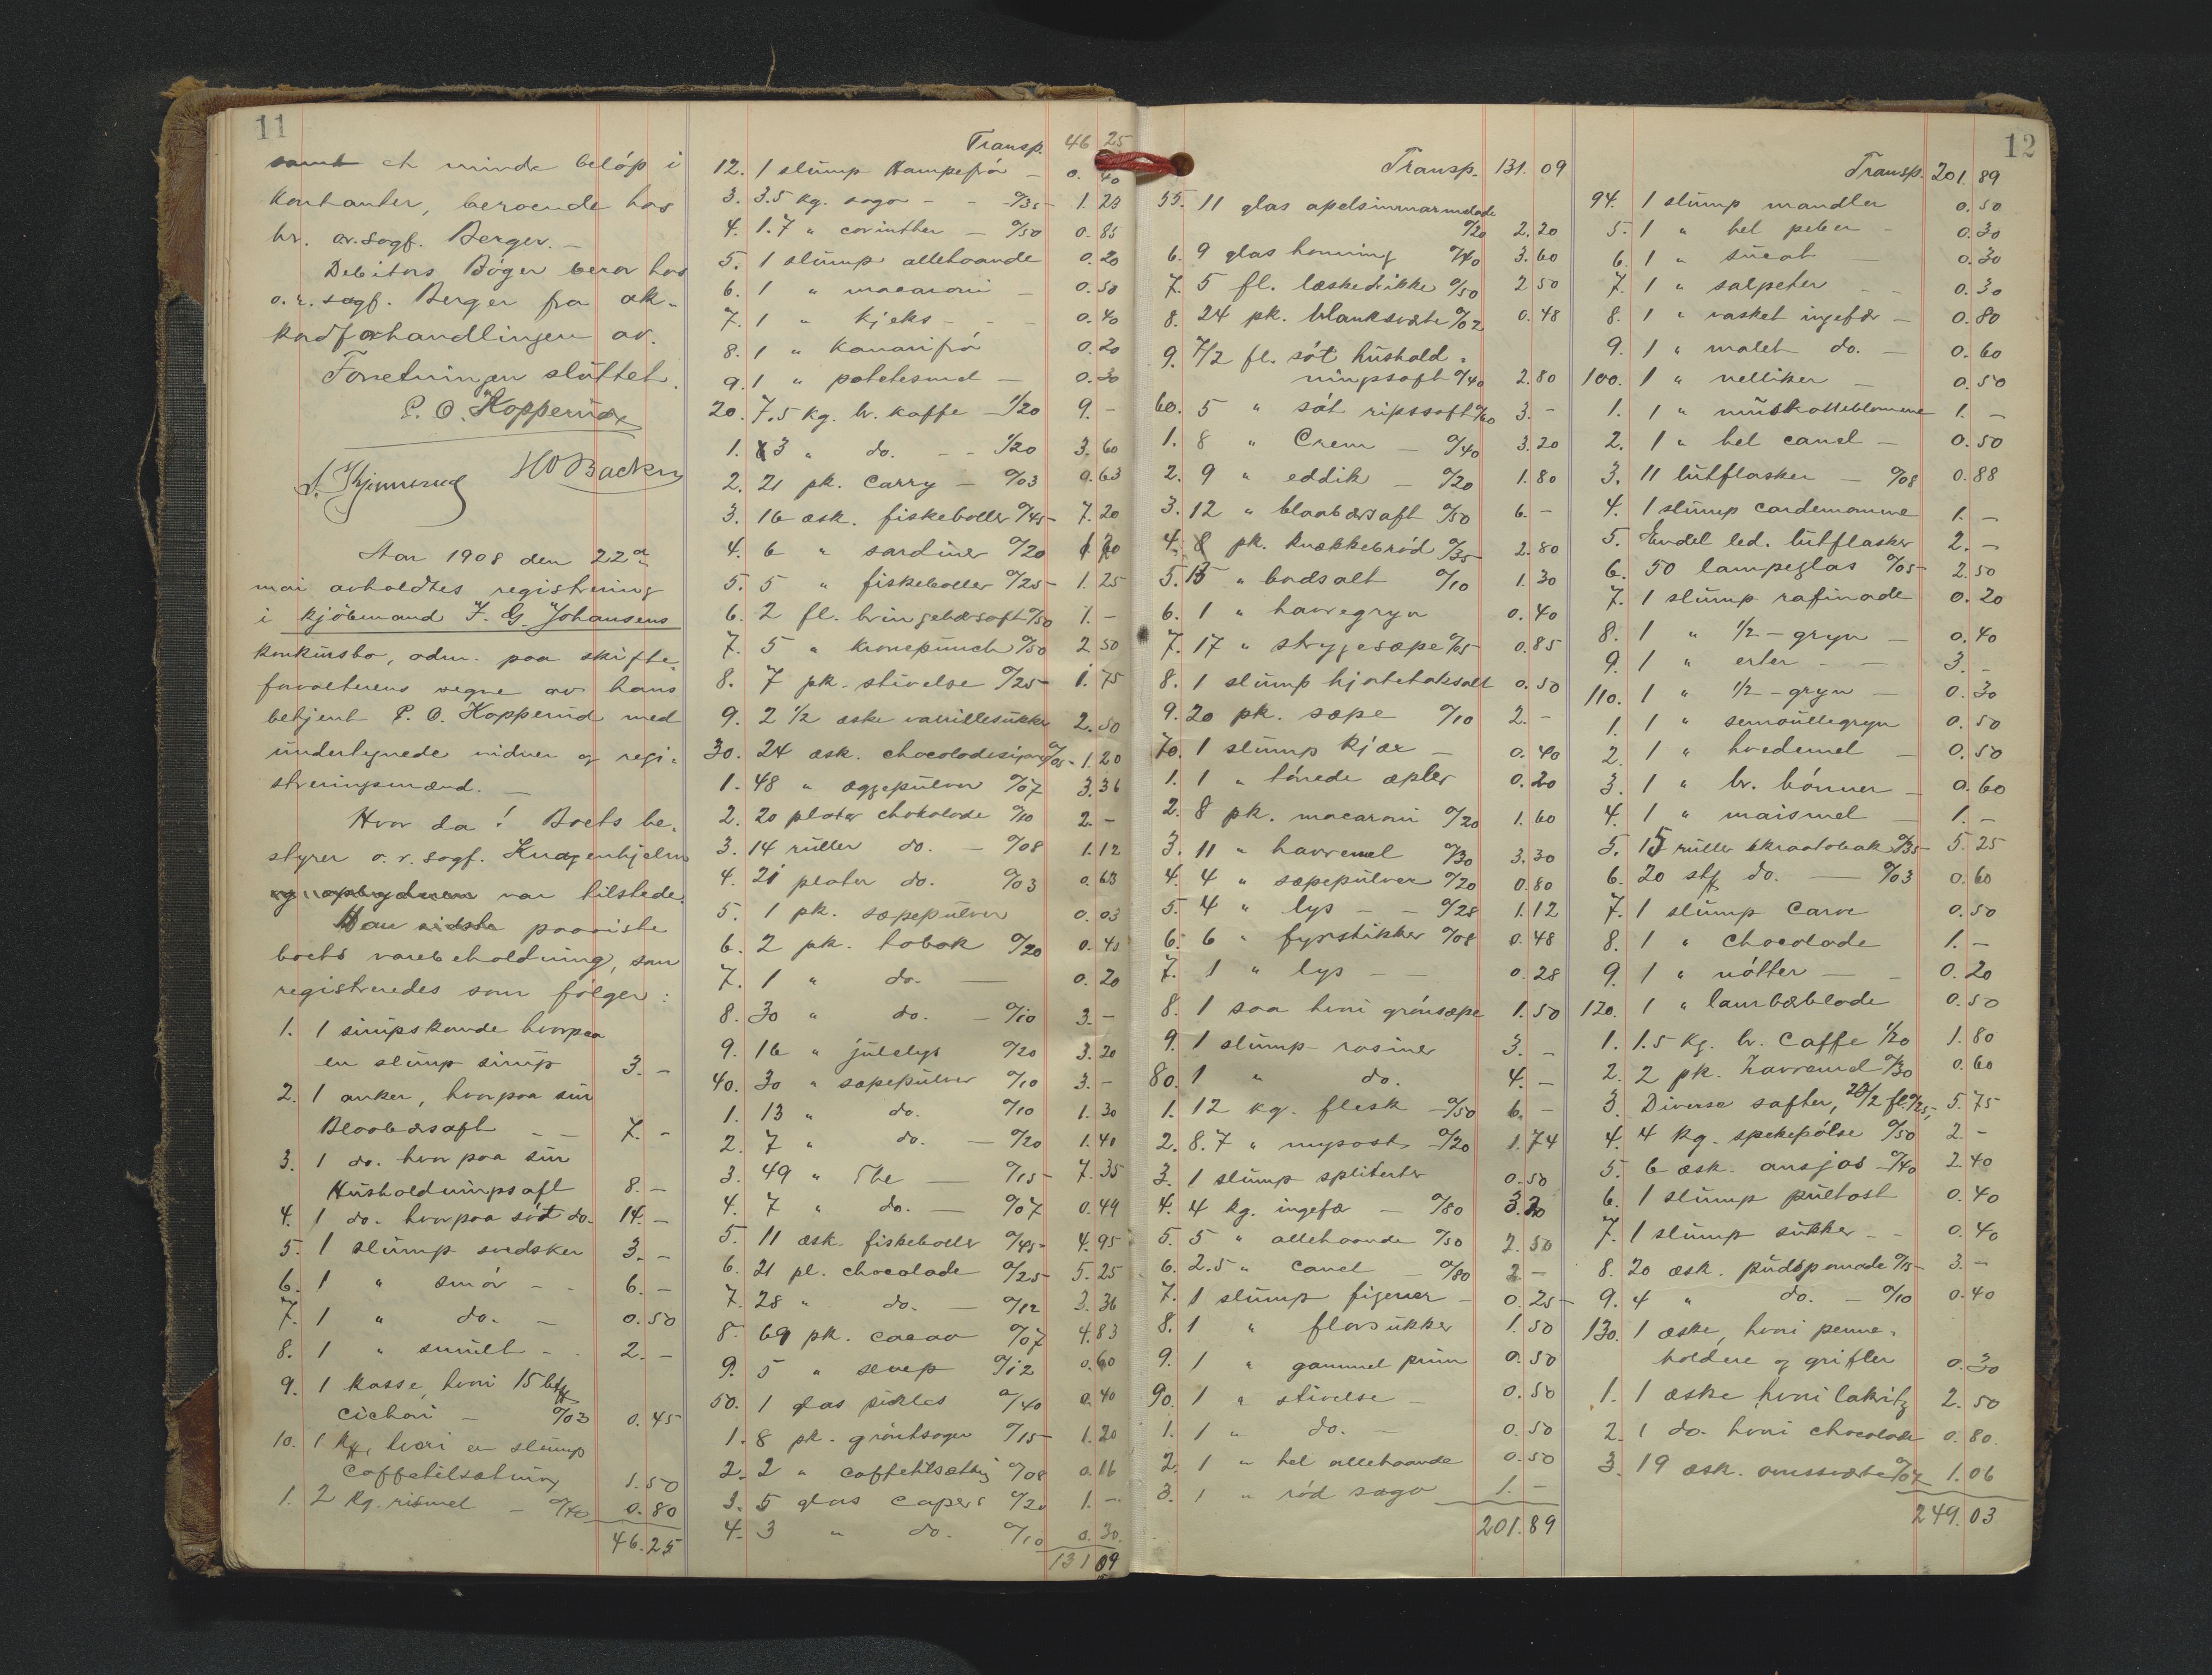 11
samt et mindre beløp i
Kontanter, beroende hos
hr. o.r.sagf. Berger. –
Debitors Bøger beror hos
o.r. sagf. Berger fra ak-
kordforhandlingen av.
Forretningen sluttet.
P. O. Kopperud
HO Backer
Aar 1908 den 22de
mai avholdtes registrering
i kjøbmand J. G. Johansens
konkursbo, adm. paa skifte-
forvalterens vegne av hans
betjent P. O. Kopperud med
undertegnede vidner og regi-
streringsmænd. –
Hvor da! Boets be-
styrer o.r. sagf. Knagenhjelm
var tilstede.
Han sidste paaviste
boets varebeholdning, som
registreredes som følger:
1. 1 sirupskande hvorpaa
en slump sirup 3. –
2. 1 anker, hvorpaa sur
Blaabærsaft – – 7. –
3. 1 do. hvorpaa sur
Husholdningssaft 8. –
4. 1 do. hvorpaa søt do. 14. –
5. 1 slump svedsker 3. –
6. 1 " smør – – 6. –
7. 1 " do. – 0.50
8. 1 " smult – – 2. –
9. 1 kasse, hvori 15
cichori – o/03 0.45
10. 1 hvori en slump
Caffetilsætning 1.50
1. 2 Kg. rismel – o/40 0.80
46.25
Transp. 46 25
12. 1 slump Hampefrø – 0.40
3. 3.5 kg. sago – – o/35 – 1.23
4. 1.7 " corinther – o/50 0.85
5. 1 slump allehaande 0.20
6. 1 " macaroni – 0.50
7. 1 " kjeks – – – 0.40
8. 1 " Kanarifrø 0.20
9. 1 " potetesmel – 0.30
20. 7.5 kg. br. kaffe – 1/20 9. –
1. 3 " do. – – 1/20 3.60
2. 21 pk. Carry – o/03 0.63
3. 16 æsk. fiskeboller o/45 – 7.20
4. 6 " sardiner o/20 1.20
5. 5 " fiskeboller o/25 – 1.25
6. 2 fl. bringebærsaft o/50 1. –
7. 5 " kronepunch o/50 2.50
8. 7 pk. stivelse o/25 – 1.75
9. 2 1/2 æske vanillesukker 2.50
30. 24 æsk. chocoladesigarer o/05 – 1.20
1. 48 " æggepulver o/07 3.36
2. 20 plater chokolade o/10 2. –
3. 14 ruller do. – o/08 1.12
4. 21 plater do. o/03 0.63
5. 1 pk. sæpepulver 0.03
6. 2 pk. tobak o/20 0.40
7. 1 " do. – 0.20
8. 30 " do. – o/10 3. –
9. 16 " julelys o/20 3.20
40. 30 " sæpepulver o/10 3. –
1. 13 " do. o/10 1.30
2. 7 " do. – o/20 1.40
3. 49 " The – o/15 – 7.35
4. 7 " do. – o/07 0.49
5. 11 æsk. fiskeboller o/45 – 4.95
6. 21 pl. chocolade o/25 – 5.25
7. 28 " do. – o/12 3.36
8. 69 pk. cacao o/07 4.83
9. 5 " senep o/12 0.60
50. 1 glas pickles o/40 0.40
1. 8 pk. grøntsager o/15 – 1.20
2. 2 " caffetilsætting o/08 0.16
3. 5 glas capers o/20 1. –
4. 3 " do. o/10 0.30
131 09
Transp. 131. 09
55. 11 glas apelsinmarmelade
o/20 2.20
6. 9 glas honning o/40 3.60
7. 5 fl. læskedrikke o/50 2 50
8. 24 pk. blanksværte o/02 0.48
9. 7/2 fl. søt hushold-
ningssaft o/40 2.80
60. 5 " søt ripssaft o/60 3. –
1. 8 " Crem – o/40 3.20
2. 9 " eddik – o/20 1.80
3. 12 " blaabærsaft o/50 6. –
4. 8 pk. knækkebrød o/35 – 2.80
5. 13 " bordsalt o/10 1.30
6. 1 " havregryn 0.40
7. 17 " strygesæpe o/05 – 0.85
8. 1 slump hjortetaksalt 0.50
9. 20 pk. sæpe o/10 2. –
70. 1 slump kjæx – 0.40
1. 1 " tørrede æpler 0.20
2. 8 pk. macaroni o/20 1.60
3. 11 " havremel o/30 3.30
4. 4 " sæpepulver o/20 0.80
5. 4 " lys – – o/28 1.12
6. 6 " fyrstikker o/08 0.48
7. 1 " lys – – 0.28
8. 1 saa hvori grønsæpe 1.50
9. 1 slump rosiner 3. –
80. 1 " do. 4. –
1. 12 kg. flesk – o/50 6. –
2. 8.7 " mysost – o/20 1.74
3. 1 slump spliterter 0.50
4. 4 kg. ingefær – o/80 3.20
5. 5 " allehaande o/50 2.50
6. 2.5 " canel – o/80 2. –
7. 1 slump figener – 0.25 –
8. 1 " florsukker 1.50
9. 1 " gammel prim 0.50
90. 1 " stivelse – 0.50
1. 1 " do. – 0.50
2. 1 " hel allehaande 0.50
3. 1 " rød sago 1. –
201.89
12
Transp. 201. 89
94. 1 slump mandler 0.50
5. 1 " hel peber – 0.30
6. 1 " sucat – 0.30
7. 1 " salpeter – – 0.30
8. 1 " vasket ingefær – 0.80
9. 1 " malet do. – 0.60
100. 1 " nelliker – 0.50
1. 1 " muskatteblomme 1. –
2. 1 " hel canel – 0.50
3. 11 lutflasker – o/08 0.88
4. 1 slump cardemomme 1. –
5. Endel led. lutflasker 2. –
6. 50 lampeglas o/05 – 2.50
7. 1 slump rafinade 0.20
8. 1 " 1/2 – gryn – 0.40
9. 1 " erter – – 3. –
110. 1 " 1/2 – gryn – 0.30
1. 1 " semoullegryn 0.50
2. 1 " hvedemel – 0.50
3. 1 " br. bønner – 0.60
4. 1 " maismel – 1. –
5. 15 ruller skraatobak o/35 – 5.25
6. 20 do. – o/03 0.60
7. 1 slump Carve 0.50
8. 1 " chocolade 1. –
9. 1 " nøtter – – 0.20
120. 1 " laurbærblade 0.50
1. 1.5 kg. br. Caffe 1/20 1.80
2. 2 pk. havremel o/30 0.60
3. Diverse safter, 23/2 fl. o/25, 5.75
4. 4 kg. spekepølse o/50 2. –
5. 6 æsk. ansjos – o/40 2.40
6. 1 slump pultost 0.40
7. 1 slump sukker – – 0.40
8. 20 æsk. pudspomade o/15 – 3. –
9. 4 " do. – o/10 0.40
130. 1 æske, hvori penne-
holdere og grifler 0.30
1. 1 æske hvori lakritz 2.50
2. 1 do. hvori chocolade 0.80
3. 19 æsk. 1.06
249.03